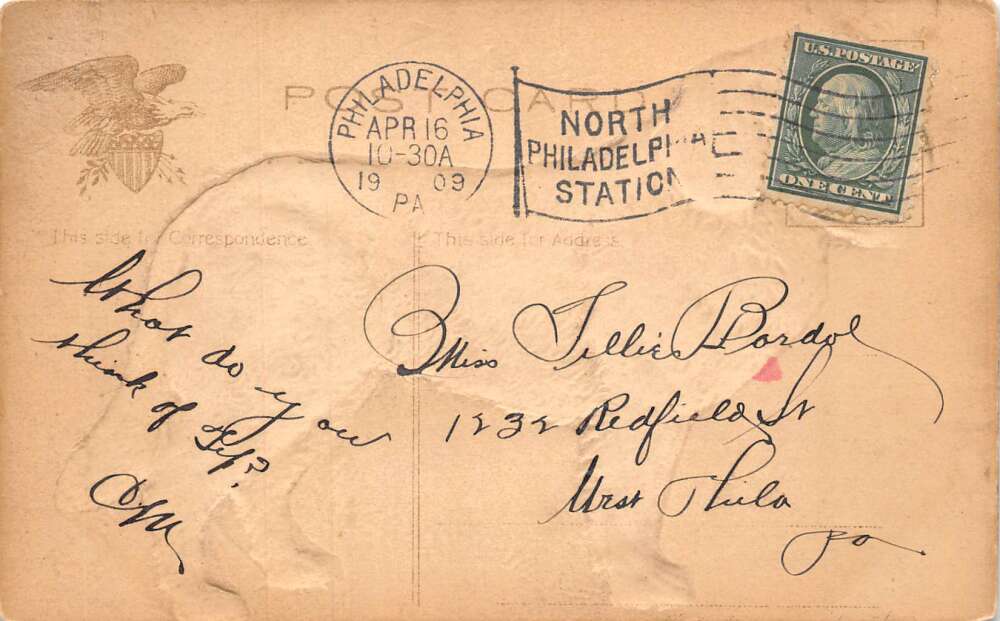 POST CARD
PHILADELPHIA
APR 16
10-30A
19 09
PA
NORTH
PHILADELPHIA
STATION
U.S. POSTAGE
ONE CENT
This side for Correspondence
This side for Address
What do you
think of
CM
Miss Tillie Bardol
1232 Redfield St
West Phila
Pa